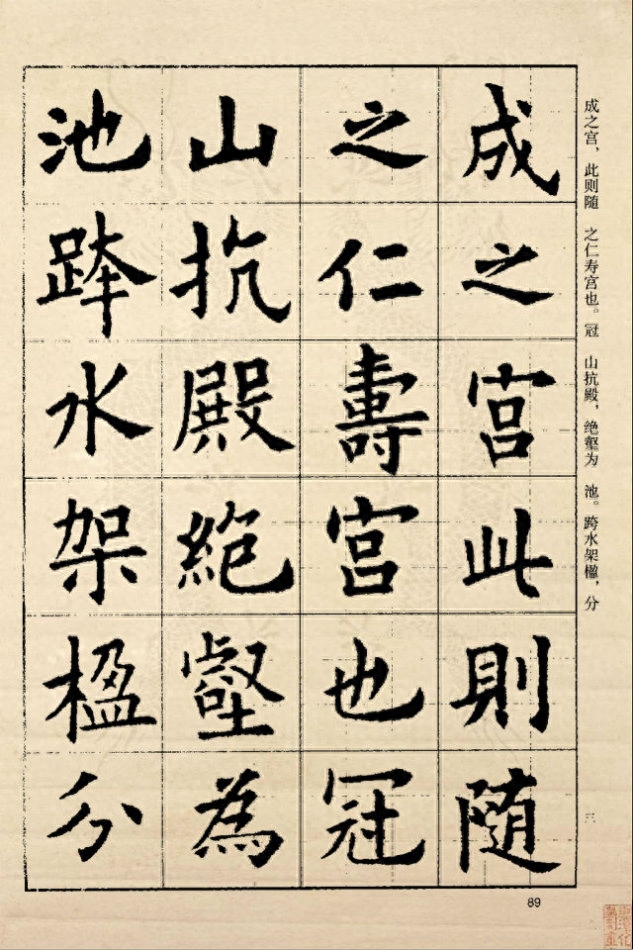 成之宫，此则随　之仁寿宫也。冠　山抗殿，绝壑为　池。跨水架楹，分
成之宫此則随
之仁壽宫也冠
山抗殿絶壑為
池跨水架楹分
三
89